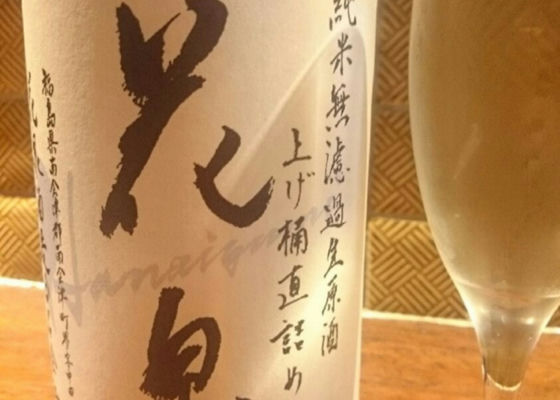 純米無濾過生原酒
上げ桶直詰め
花泉
Hanaizumi
福島県南会津郡南会津町界字中田
花泉酒造